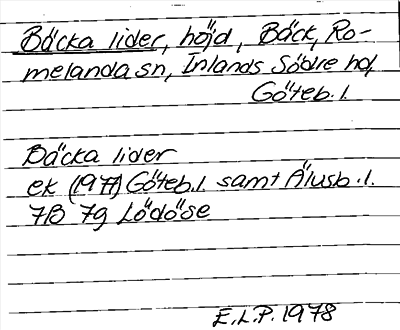 Bäcka lider, höjd, Bäck, Ro-
melanda sn, Inlands Södre hd,
Göteb. l.
Bäcka lider
ek (1977) Göteb. l. samt Älvsb. l.
7B 7g Lödöse
E.L.P. 1978